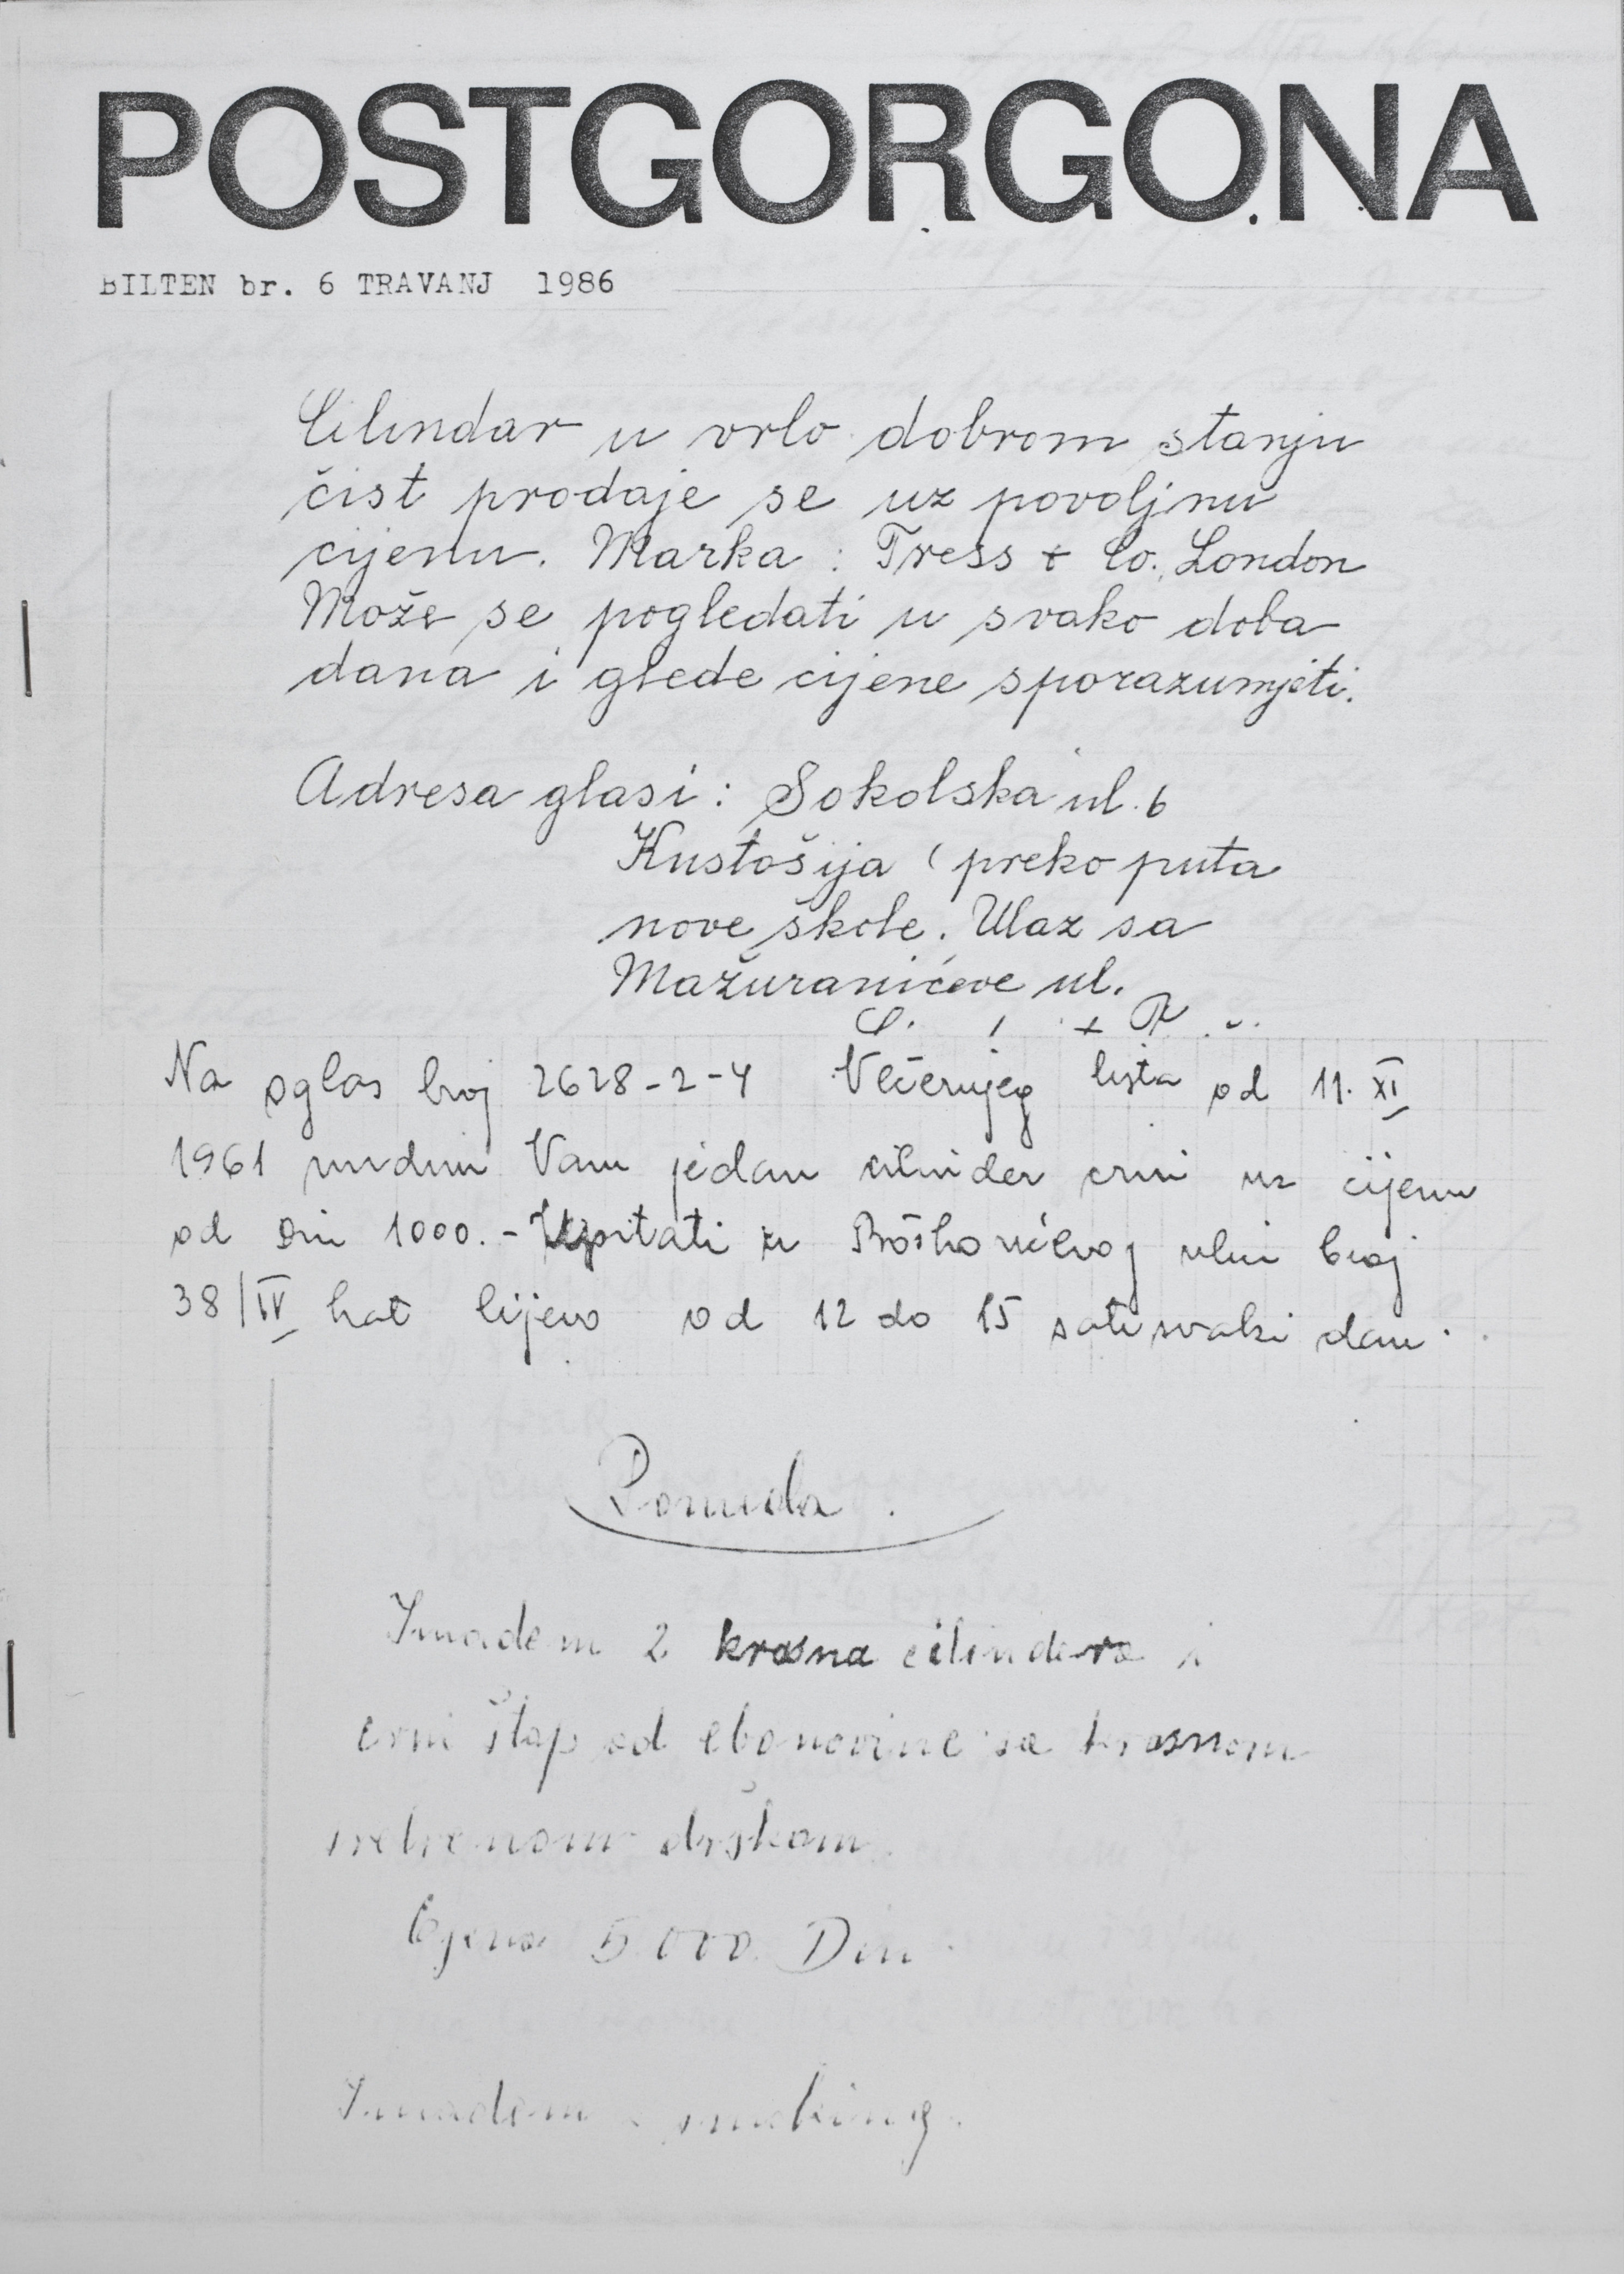 POSTGORGONA
BILTEN br. 6 TRAVANJ 1986
Cilindar u vrlo dobrom stanju
čist prodaje se uz povoljnu
cijenu. Marka : Tress + Co. London
Može se pogledati u svako doba
dana i glede cijene sporazumjeti.
Adresa glasi : Sokolska ul. 6
Kustošija ( preko puta
nove škole. Ulaz sa
Mažuranićeve ul.
Na oglas broj 2628-2-4 Večernjeg lista od 11. XI
1961 nudim Vam jedan cilinder crni uz cijenu
od Din 1000.- Upitati u Boškovićevoj ulici broj
38/IV kat lijevo od 12 do 15 sati svaki dan.
Ponuda.
Imadem 2 krasna cilindera i
crni štap od ebanovine sa krasnom
srebrenom drškom.
Cijena 5.000. Din.
Imadem smoking.